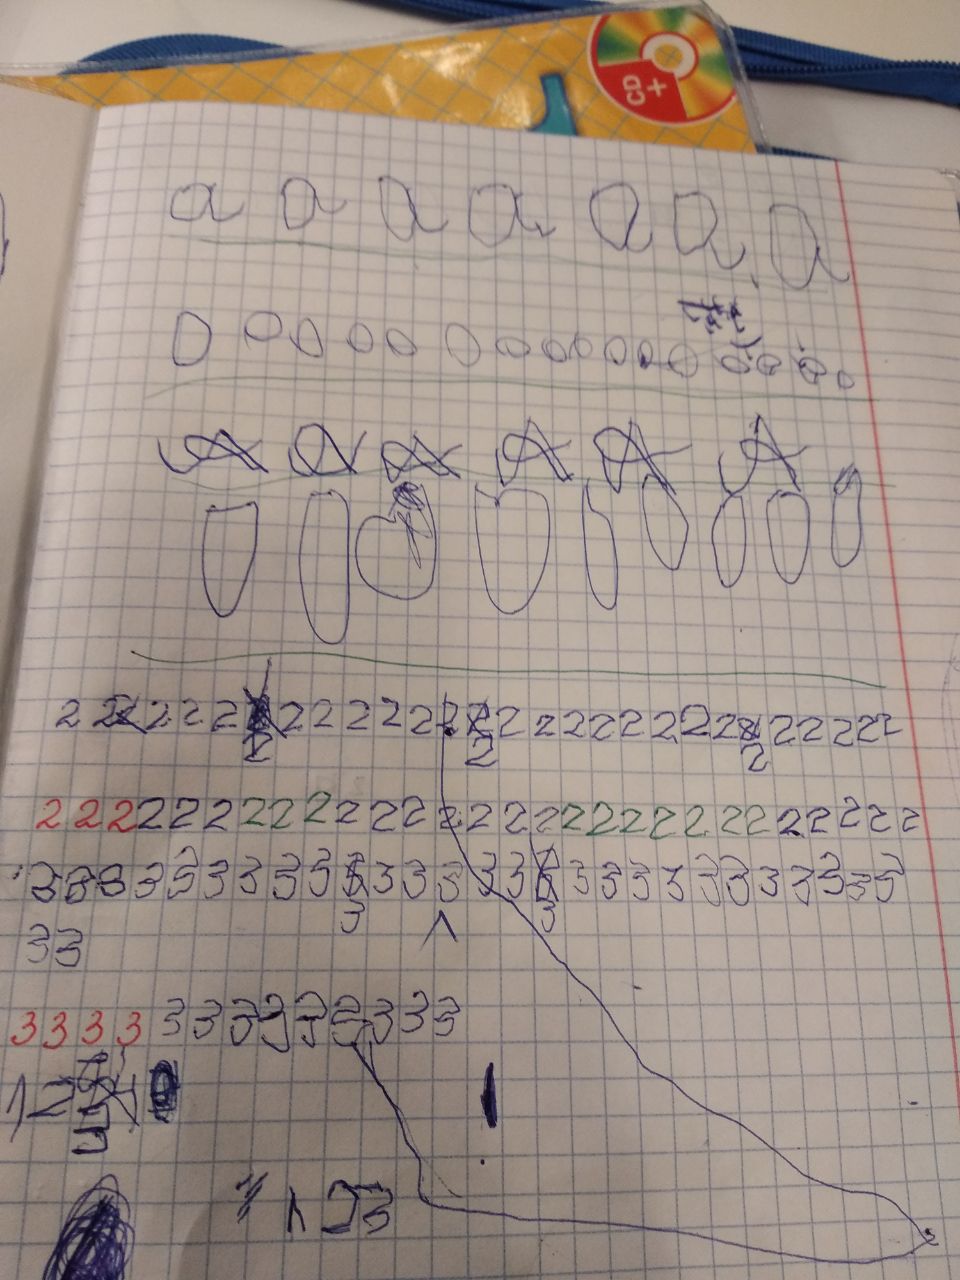 CD
+
a a a a a a a
0 0 0 0 0 0 0 0 0 0 0 0 0 0 0 0
2 2 2 2 2 2 2 2 2 2 2 2 2 2 2 2 2 2 2 2 2 2 2 2 2 2 2
2 2 2
2 2 2 2 2 2 2 2 2 2 2 2 2 2 2 2 2 2 2 2 2 2 2 2 2 2 2 2
3 3 3 3 3 3 3 3 3 3 3 3 3 3 3 3 3 3 3 3 3 3 3 3 3 3 3
3 3
3 3
3 3 3 3 3 3 3 3 3 3 3 3 3 3
1 2
1 2 3